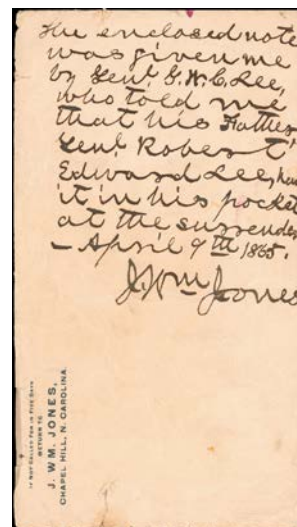 The enclosed note
was given me
by Genl. G. W. C. Lee,
who told me
that his Father
Genl. Robert
Edward Lee, had
it in his pocket
at the surrender
– April 9th 1865.
J. Wm Jones
IF NOT CALLED FOR IN FIVE DAYS
RETURN TO
J. WM. JONES,
CHAPEL HILL, N. CAROLINA.